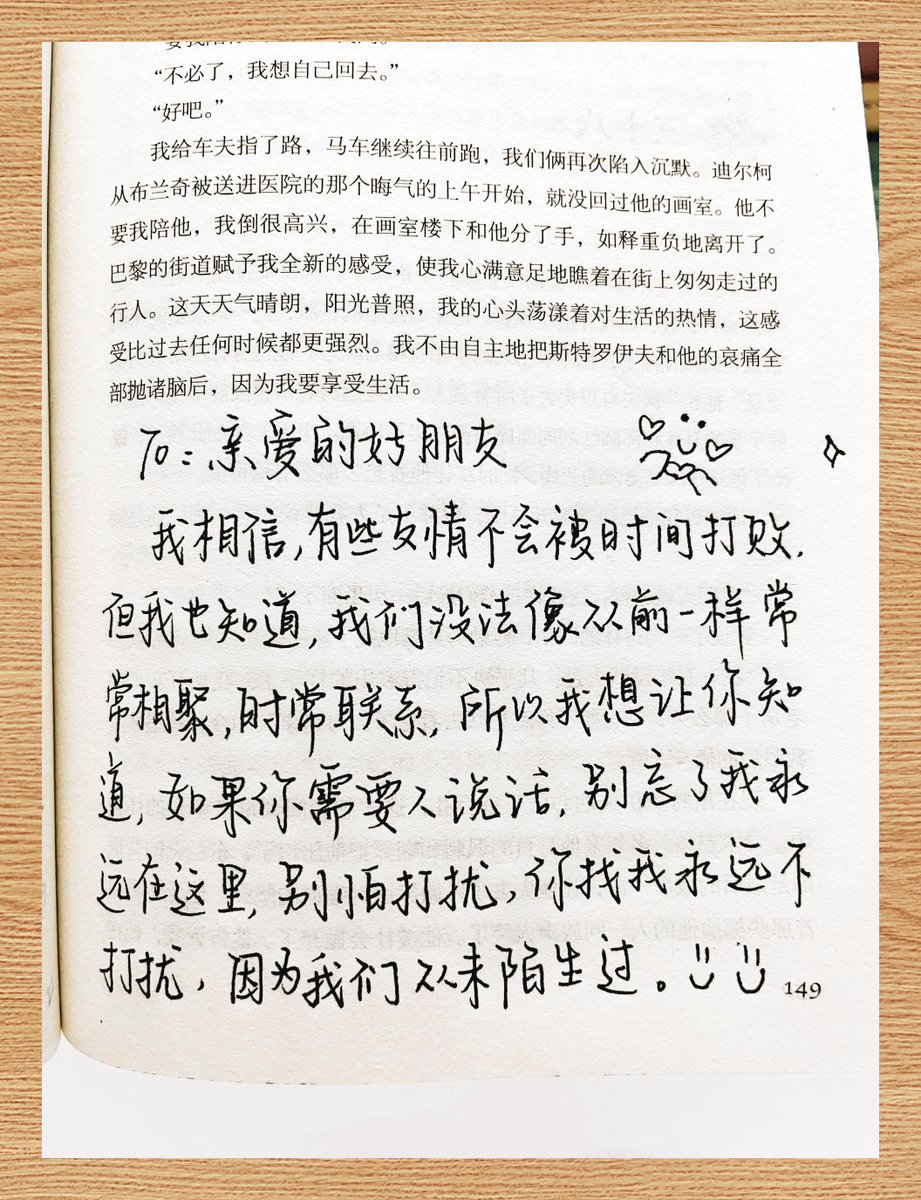 “不必了，我想自己回去。”
“好吧。”
我给车夫指了路，马车继续往前跑，我们俩再次陷入沉默。迪尔柯
从布兰奇被送进医院的那个晦气的上午开始，就没回过他的画室。他不
要我陪他，我倒很高兴，在画室楼下和他分了手，如释重负地离开了。
巴黎的街道赋予我全新的感受，使我心满意足地瞧着在街上匆匆走过的
行人。这天天气晴朗，阳光普照，我的心头荡漾着对生活的热情，这感
受比过去任何时候都更强烈。我不由自主地把斯特罗伊夫和他的哀痛全
部抛诸脑后，因为我要享受生活。
To：亲爱的好朋友
我相信，有些友情不会被时间打败.
但我也知道，我们没法像从前一样常
常相聚，时常联系，所以我想让你知
道，如果你需要人说话，别忘了我永
远在这里，别怕打扰，你找我永远不
打扰，因为我们从未陌生过。
149